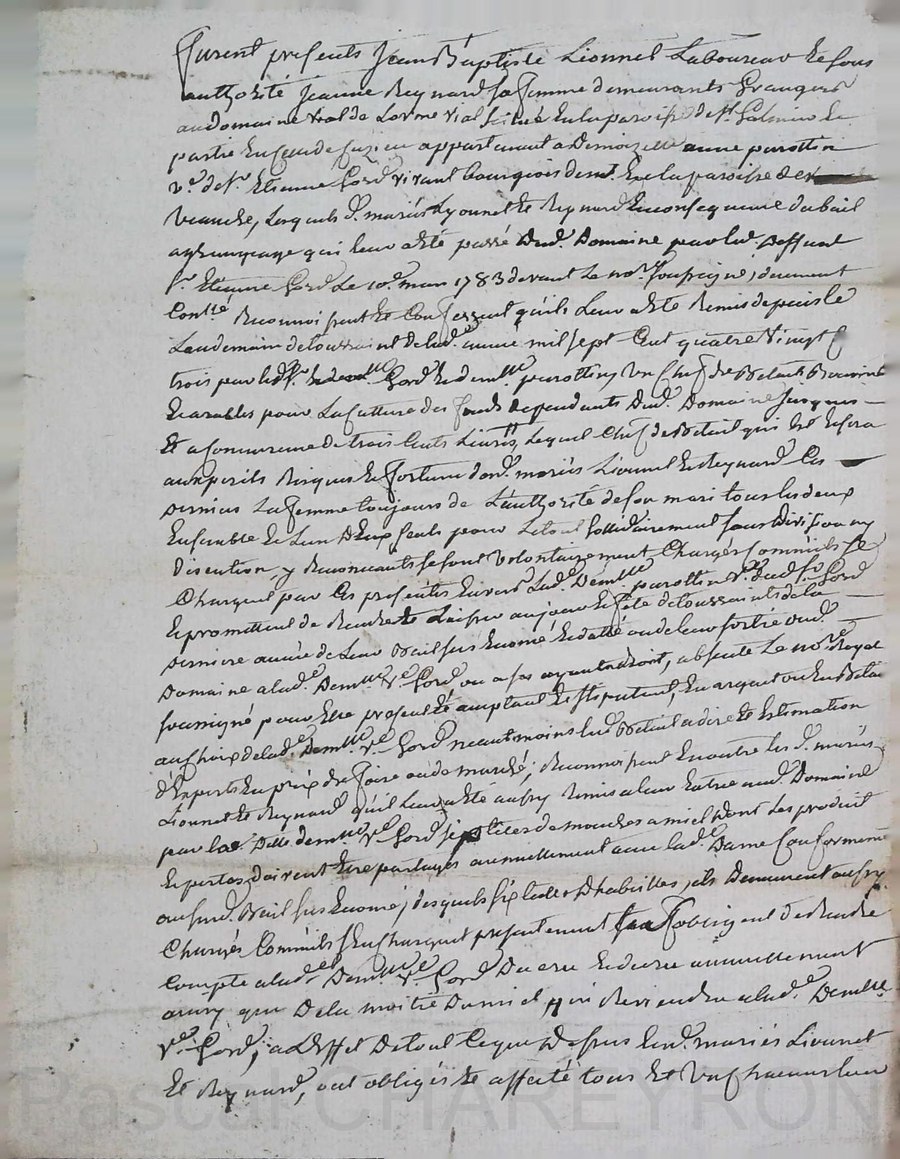 furent presents Jean Baptiste Lionnet Laboureur et sous
authorité Jeanne Reynard sa femme demeurants Grangers
au domaine vial de Lorme vial scitué en la paroisse de St. Galmier et
partie en celle de Cuzieu appartenant a Demoizelle anne parottin
ve. de sr. Etienne Gord vivant bourgeois dem.t en la paroisse de
veauche, Lesquels d. mariés Lyonnet et Reynard en consequence du bail
a grangeage qui leur a été passé dud. Domaine par led. deffunt
sr. Etienne Gord Le 10e. mars 1783 devant Le nore. soussigné, duement
Contlé Reconnoissent et Confessent qu'ils Leur a été Remis depuis le
Landemain de toussaint de lad. année mil sept Cent quatre vingt
trois par led. sr. Gord et demlle. parottin, un Chef de Bétail Bovine
et arables pour La culture des fonds dependants dud. Domaine jusques
a concurrence de trois Cents Livres, Lequel Chef de Bétail qui est et sera
aux perils Risques et fortune desd. mariés Lionnet et Reynard Ces
derniers La femme toujours de L'authorité de son mari tous les deux
Ensemble et L'un d'eux seuls pour Le tout sollidairement sans division ny
discution, y Renonceants se sont volontairement Chargés Comm'ils se
Chargent par Ces presentes Envers Lad. Demlle. parottin ve. dud. sr. Gord
et promettent de Rendre et Laisser au jour et fete de toussaints de la
derniere année de Leur Bail sus Enomé et datté ou de leur sortie dud.
Domaine a lad. Demlle. ve. Gord ou a ses ayants droit, absente Le nore. Royal
soussigné pour Elle présent et acceptant et stipulant, En argent ou En Bétail
au choix de lad. Demlle. ve. Gord neantmoins led. Bétail a dire et Estimation
d'Experts En prix de foire ou de marché; Reconnoissent En outre les d. mariés
Lionnet et Reynard qu'il Leur a été aussy Remis a leur Entrée aud. Domaine
par lad. demlle. ve. Gord sept têtes de mouches a miel dont Les produit
et pertes doivent Etre partagés annuellement avec lad. Dame Conformement
au surd. Bail sus Enomé; desquels six têtes D'habeilles, ils Demeurent aussy
Chargés Comm'ils s'En chargent presentement s'obligent de Rendre
Compte a lad. Demlle. ve. Gord Du cru et decru annuellement
ainsy que De la moitié Du miel qui Reviendra a lad. Demlle.
ve. Gord; a L'Effet De tout Ce que Dessus Lesd. mariés Lionnet
et Reynard, ont obligés et affecté tous Et Un chacuns leur
Pascal CHAREYRON